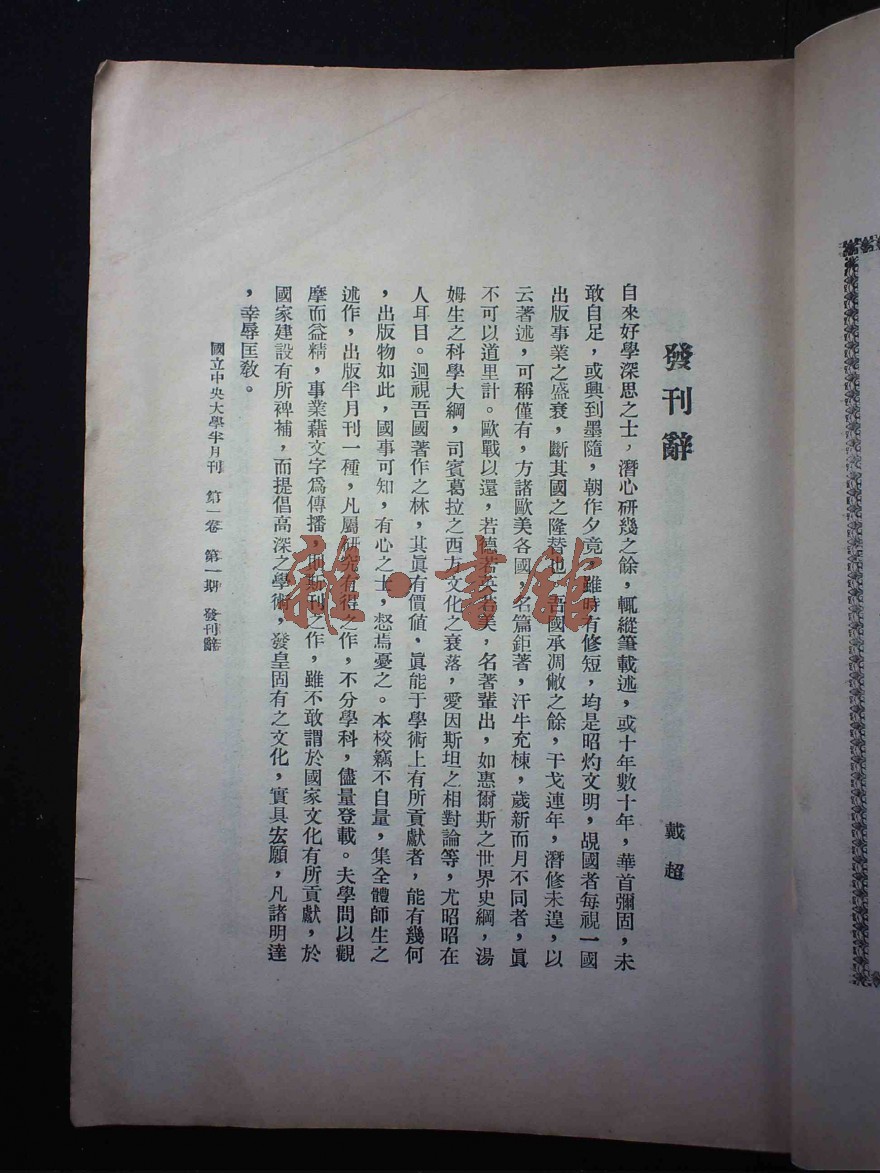 發刊辭
戴超
自來好學深思之士，潛心研幾之餘，輒縱筆載述，或十年數十年，華首彌固，未
敢自足，或興到墨隨，朝作夕竟，雖時有修短，均是昭灼文明，覘國者每視一國
出版事業之盛衰，斷其國之隆替也。吾國承凋敝之餘，干戈連年，潛修未遑，以
云著述，可稱僅有，方諸歐美各國，名篇鉅著，汗牛充棟，歲新而月不同者，眞
不可以道里計。歐戰以還，若德若英若美，名著輩出，如惠爾斯之世界史綱，湯
姆生之科學大綱，司賓葛拉之西方文化之衰落，愛因斯坦之相對論等，尤昭昭在
人耳目。迴視吾國著作之林，其眞有價値，眞能于學術上有所貢獻者，能有幾何
，出版物如此，國事可知，有心之士，惄焉憂之。本校竊不自量，集全體師生之
述作，出版半月刊一種，凡屬研究有得之作，不分學科，儘量登載。夫學問以觀
摩而益精，事業藉文字爲傳播，則斯刊之作，雖不敢謂於國家文化有所貢獻，於
國家建設有所裨補，而提倡高深之學術，發皇固有之文化，實具宏願，凡諸明達
，幸辱匡敎。
國立中央大學半月刊　第一卷　第一期　發刊辭
雜·書館